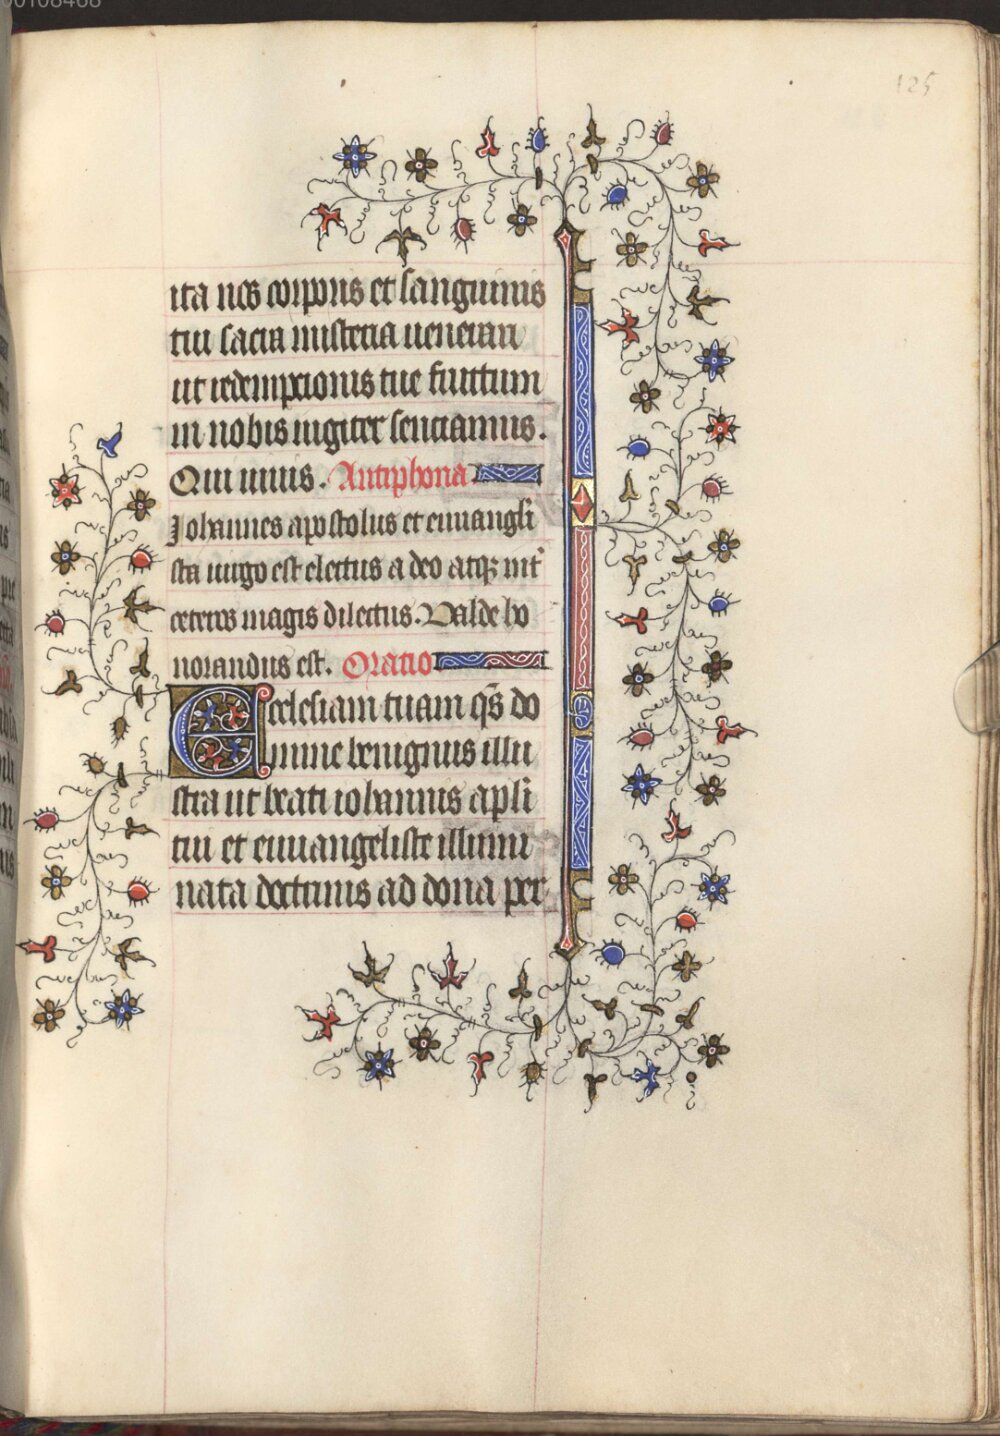 00108468
125
ita nos corporis et sanguinis
tui sacra misteria uenerari
ut redempcionis tue fructum
in nobis iugiter senciamus.
Qui uiuis. Antiphona
Johannes apostolus et euuangl̄i
sta uirgo est electus a deo atqꝫ int̄
ceteros magis dilectus. Valde ho
norandus est. Oratio
Ecclesiam tuam qs̄ do
mine benignus illu
stra ut beati iohannis apl̄i
tui et euuangeliste illumi
nata doctrinis ad dona per